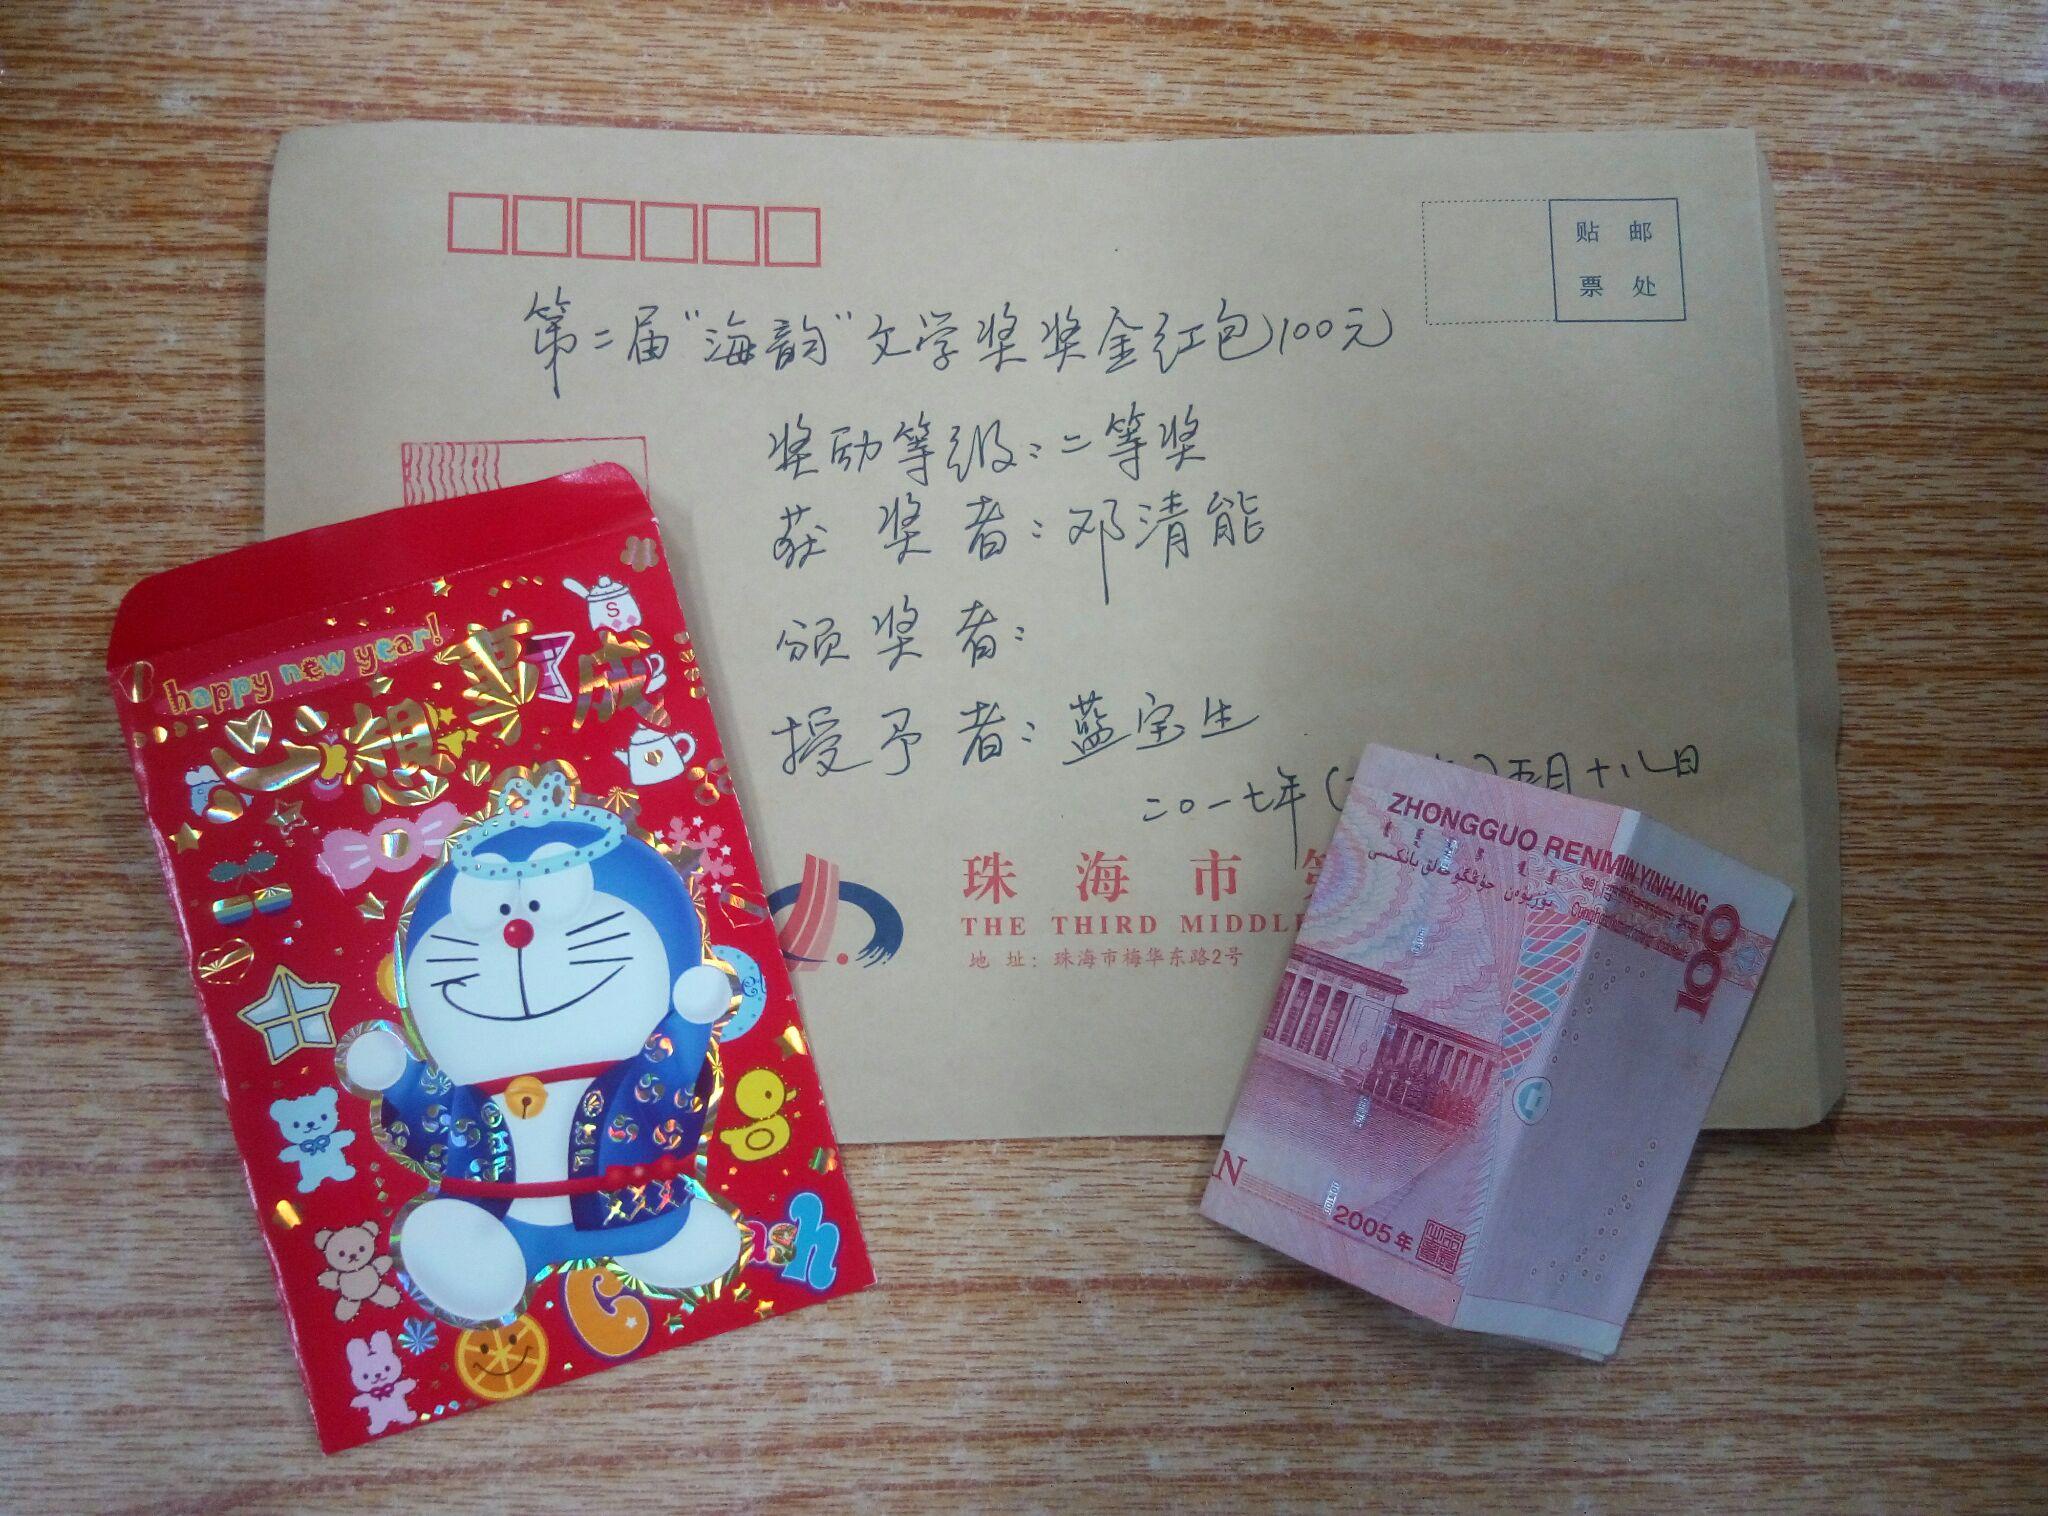 贴 邮
票 处
第二届“海韵”文学奖奖金红包100元
奖励等级：二等奖
获奖者：邓清能
颁奖者：
授予者：蓝宝生
二〇一七年( )五月十八日
珠海市
THE THIRD MIDDLE
地 址：珠海市梅华东路2号
happy new year!
心想事成
S
ZHONGGUO RENMIN YINHANG
100
2005年